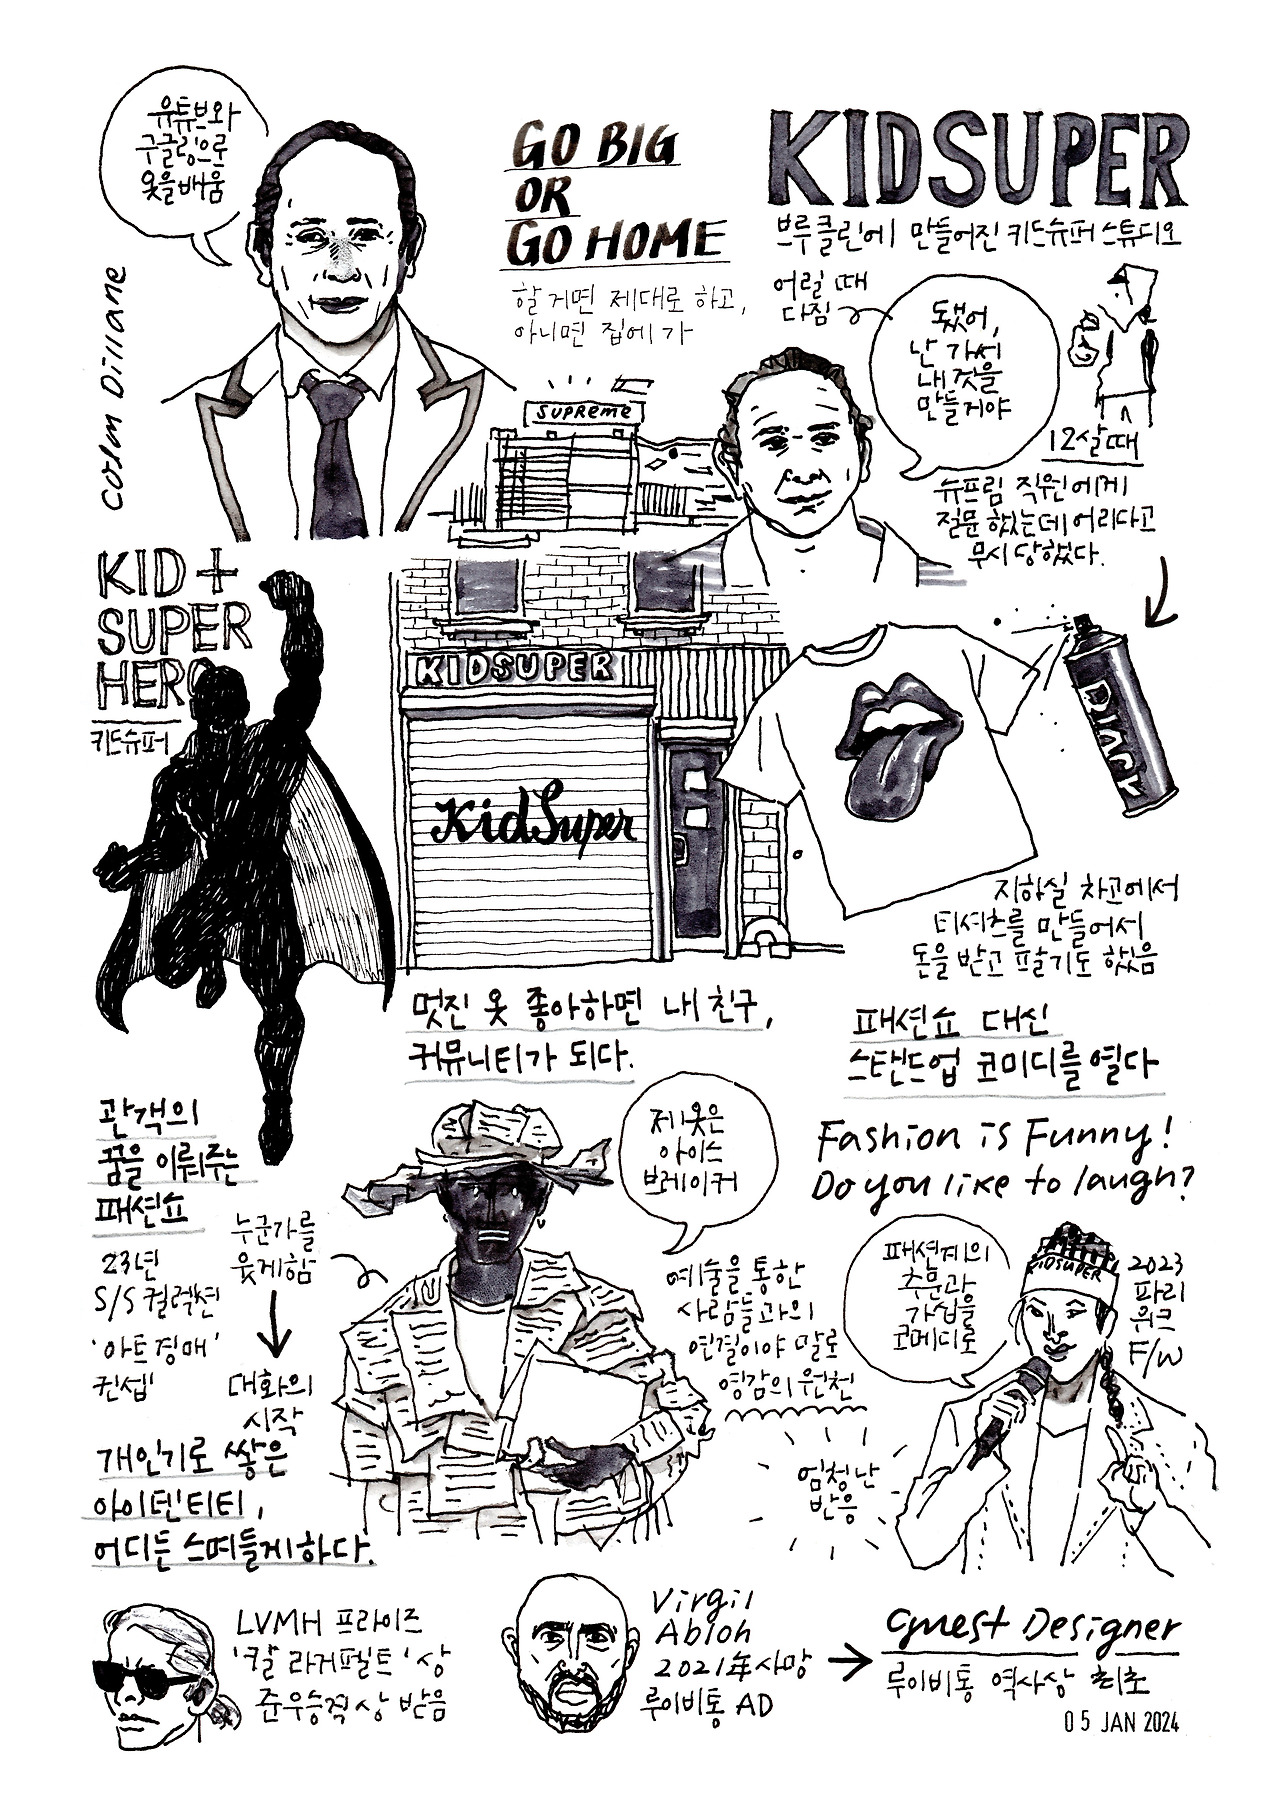 유튜브와
구글링으로
옷을 배움
Colm Dillane
GO BIG
OR
GO HOME
할 거면 제대로 하고,
아니면 집에 가
KIDSUPER
브루클린에 만들어진 키드슈퍼 스튜디오
어릴 때
다짐
됐어,
난 가서
내 것을
만들거야
12살때
슈프림 직원에게
질문 했는데 어리다고
무시 당했다.
SUPREME
KID +
SUPER
HERO
키드슈퍼
KIDSUPER
KidSuper
BLACK
지하실 차고에서
티셔츠를 만들어서
돈을 받고 팔기도 했음
멋진 옷 좋아하면 내 친구,
커뮤니티가 되다.
패션쇼 대신
스탠드업 코미디를 열다
Fashion is Funny!
Do you like to laugh?
관객의
꿈을 이뤄주는
패션쇼
23년
S/S 컬렉션
'아트 경매'
컨셉
누군가를
웃게함
대화의
시작
제 옷은
아이스
브레이커
예술을 통한
사람들과의
연결이야 말로
영감의 원천
패션계의
추문과
가십을
코메디로
KIDSUPER
2023
파리
위크
F/W
엄청난
반응
개인기로 쌓은
아이덴티티,
어디든 스며들게하다.
LVMH 프라이즈
'칼 라거펠트' 상
준우승격 상 받음
Virgil
Abloh
2021年 사망
루이비통 AD
Guest Designer
루이비통 역사상 최초
05 JAN 2024